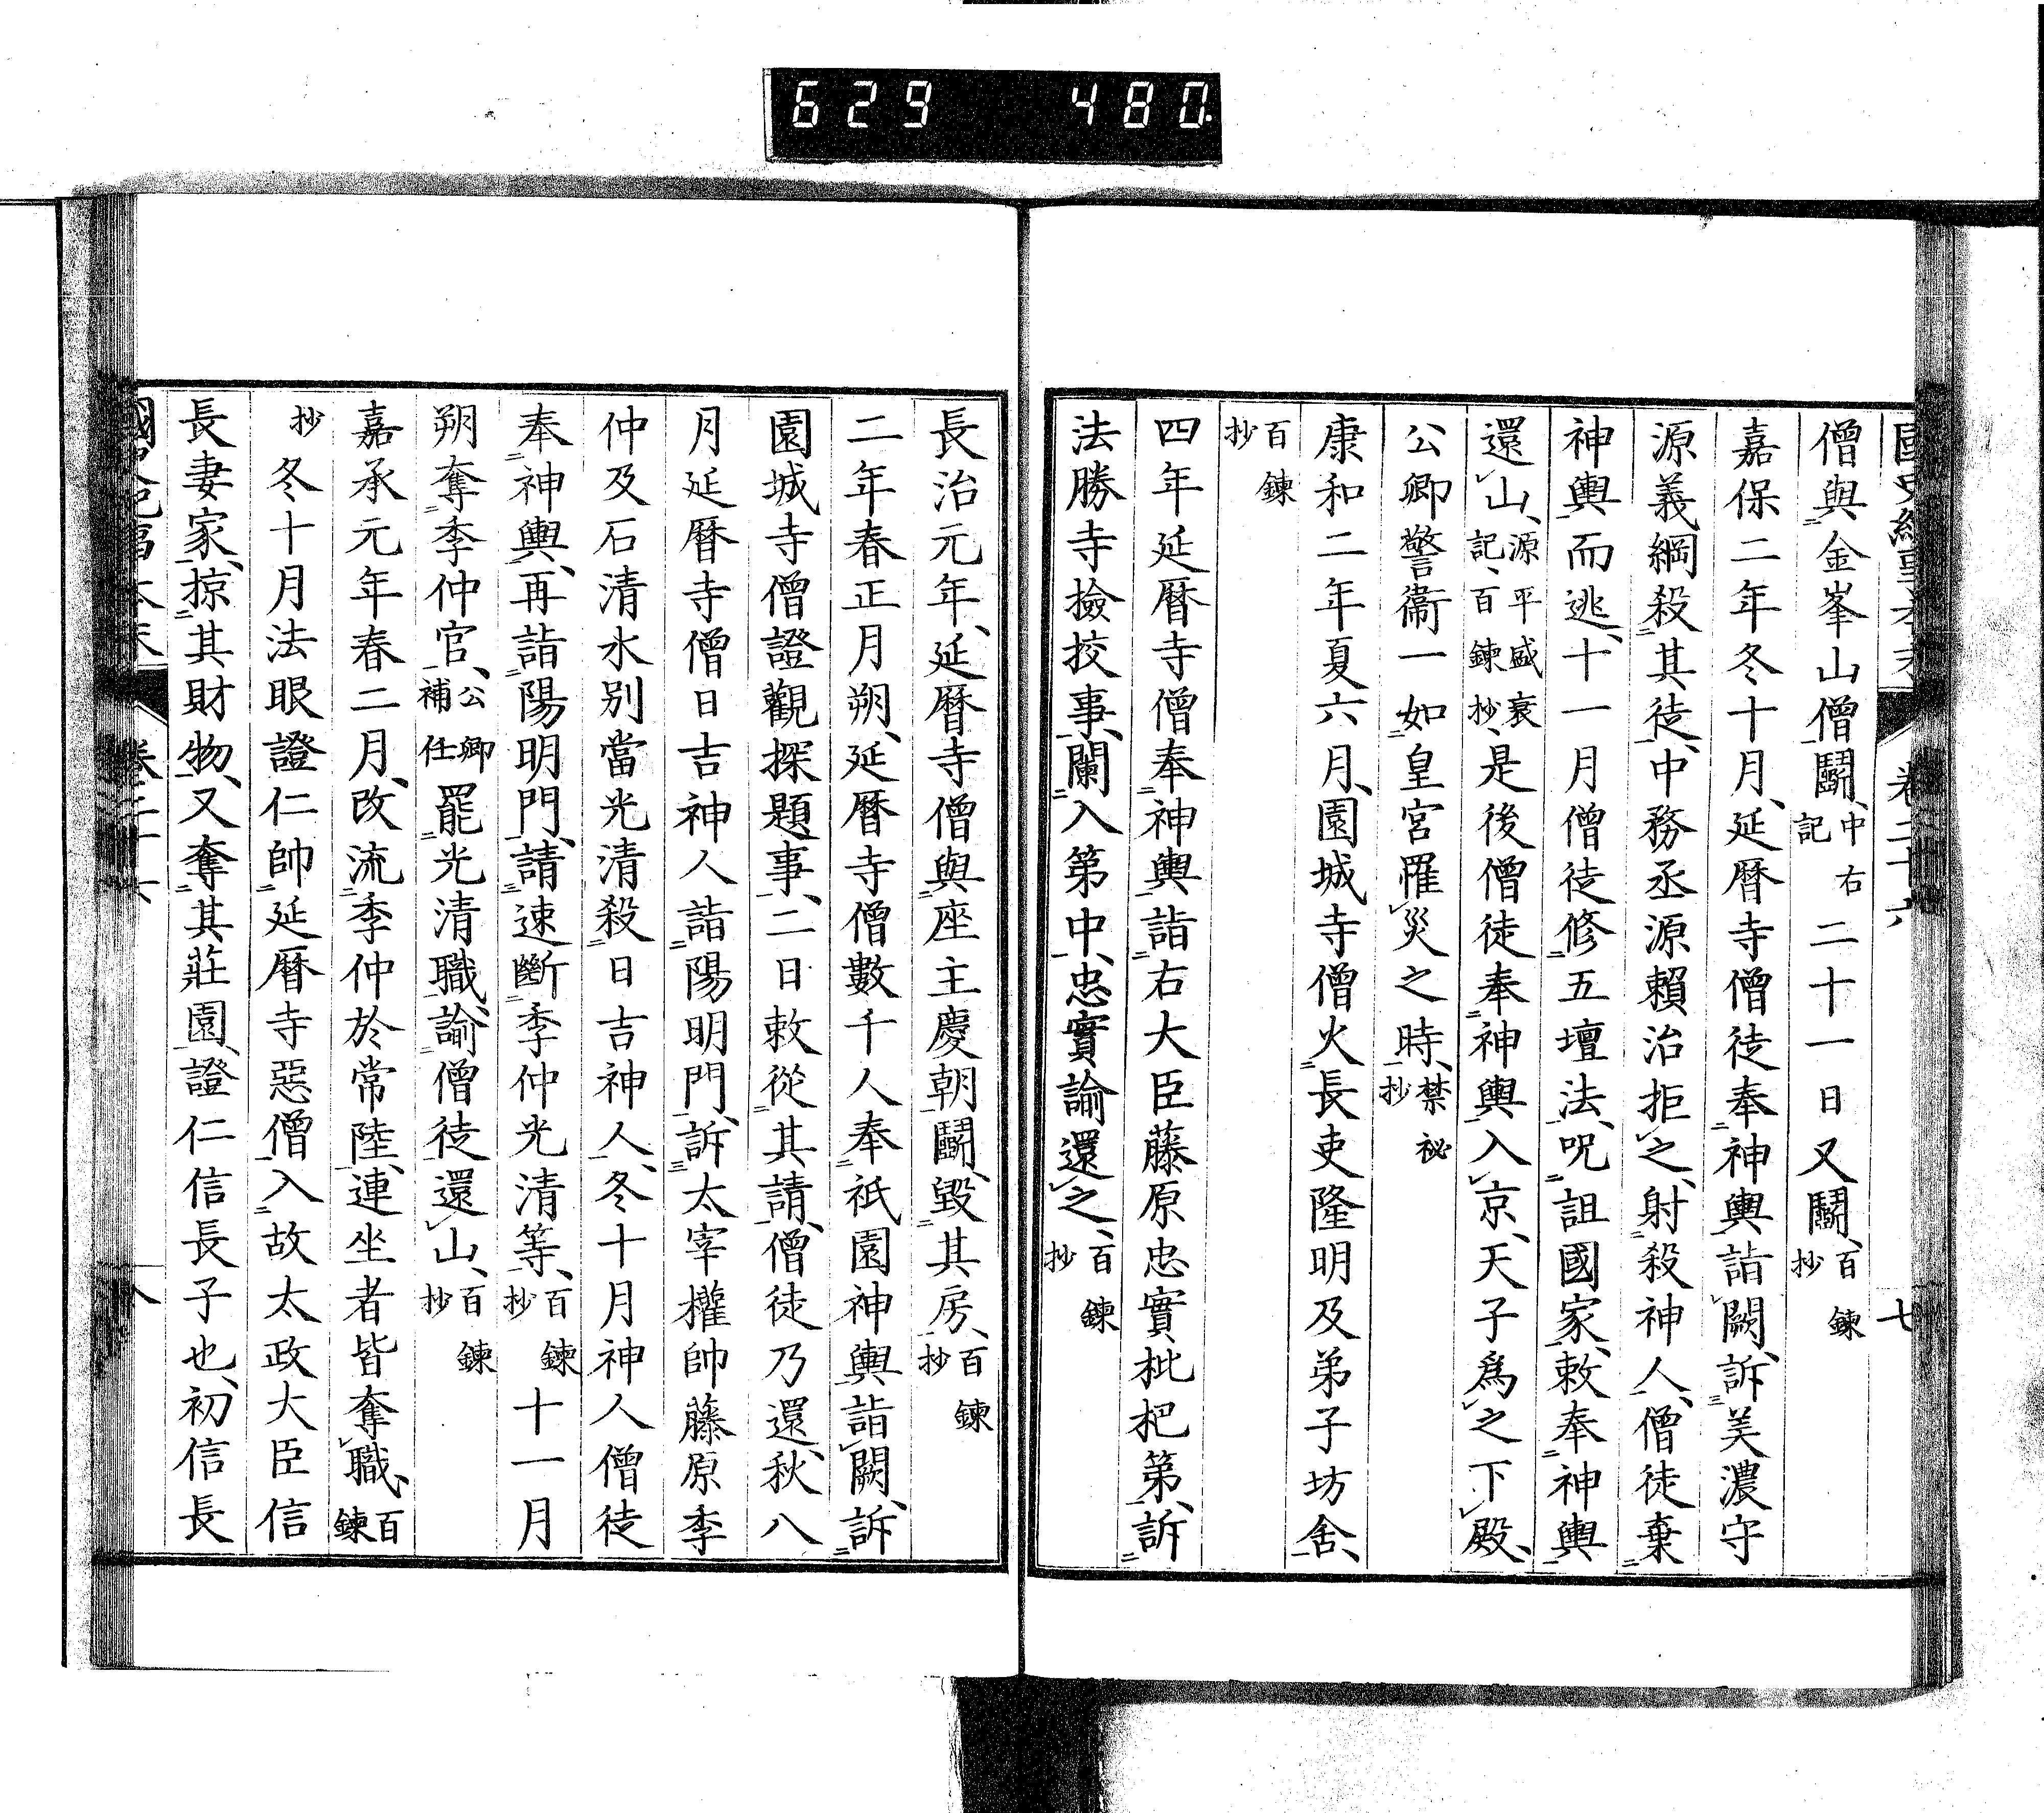 629 480
國史紀事本末 卷二十六 七
僧與金峯山僧鬭、中右記二十一日又鬭、百鍊抄
嘉保二年冬十月、延曆寺僧徒奉神輿詣闕、訴美濃守
源義綱殺其徒、中務丞源賴治拒之、射殺神人、僧徒棄
神輿而逃、十一月僧徒修五壇法、呪詛國家、敕奉神輿
還山、源平盛衰記、百鍊抄、是後僧徒奉神輿入京、天子爲之下殿、
公卿警衞一如皇宮罹災之時、禁祕抄
康和二年夏六月、園城寺僧火長吏隆明及弟子坊舍、
百鍊抄
四年延曆寺僧奉神輿詣右大臣藤原忠實枇杷第、訴
法勝寺撿挍事、闌入第中、忠實諭還之、百鍊抄
長治元年、延曆寺僧與座主慶朝鬭、毀其房、百鍊抄
二年春正月朔、延曆寺僧數千人奉祇園神輿詣闕、訴
園城寺僧證觀探題事、二日敕從其請、僧徒乃還、秋八
月延曆寺僧日吉神人詣陽明門、訴太宰權帥藤原季
仲及石清水別當光清殺日吉神人、冬十月神人僧徒
奉神輿、再詣陽明門、請速斷季仲光清等、百鍊抄十一月
朔奪季仲官、公卿補任罷光清職、諭僧徒還山、百鍊抄
嘉承元年春二月、改流季仲於常陸、連坐者皆奪職、百鍊
抄冬十月法眼證仁帥延曆寺惡僧入故太政大臣信
長妻家、掠其財物、又奪其莊園、證仁信長子也、初信長
卷二十六 八